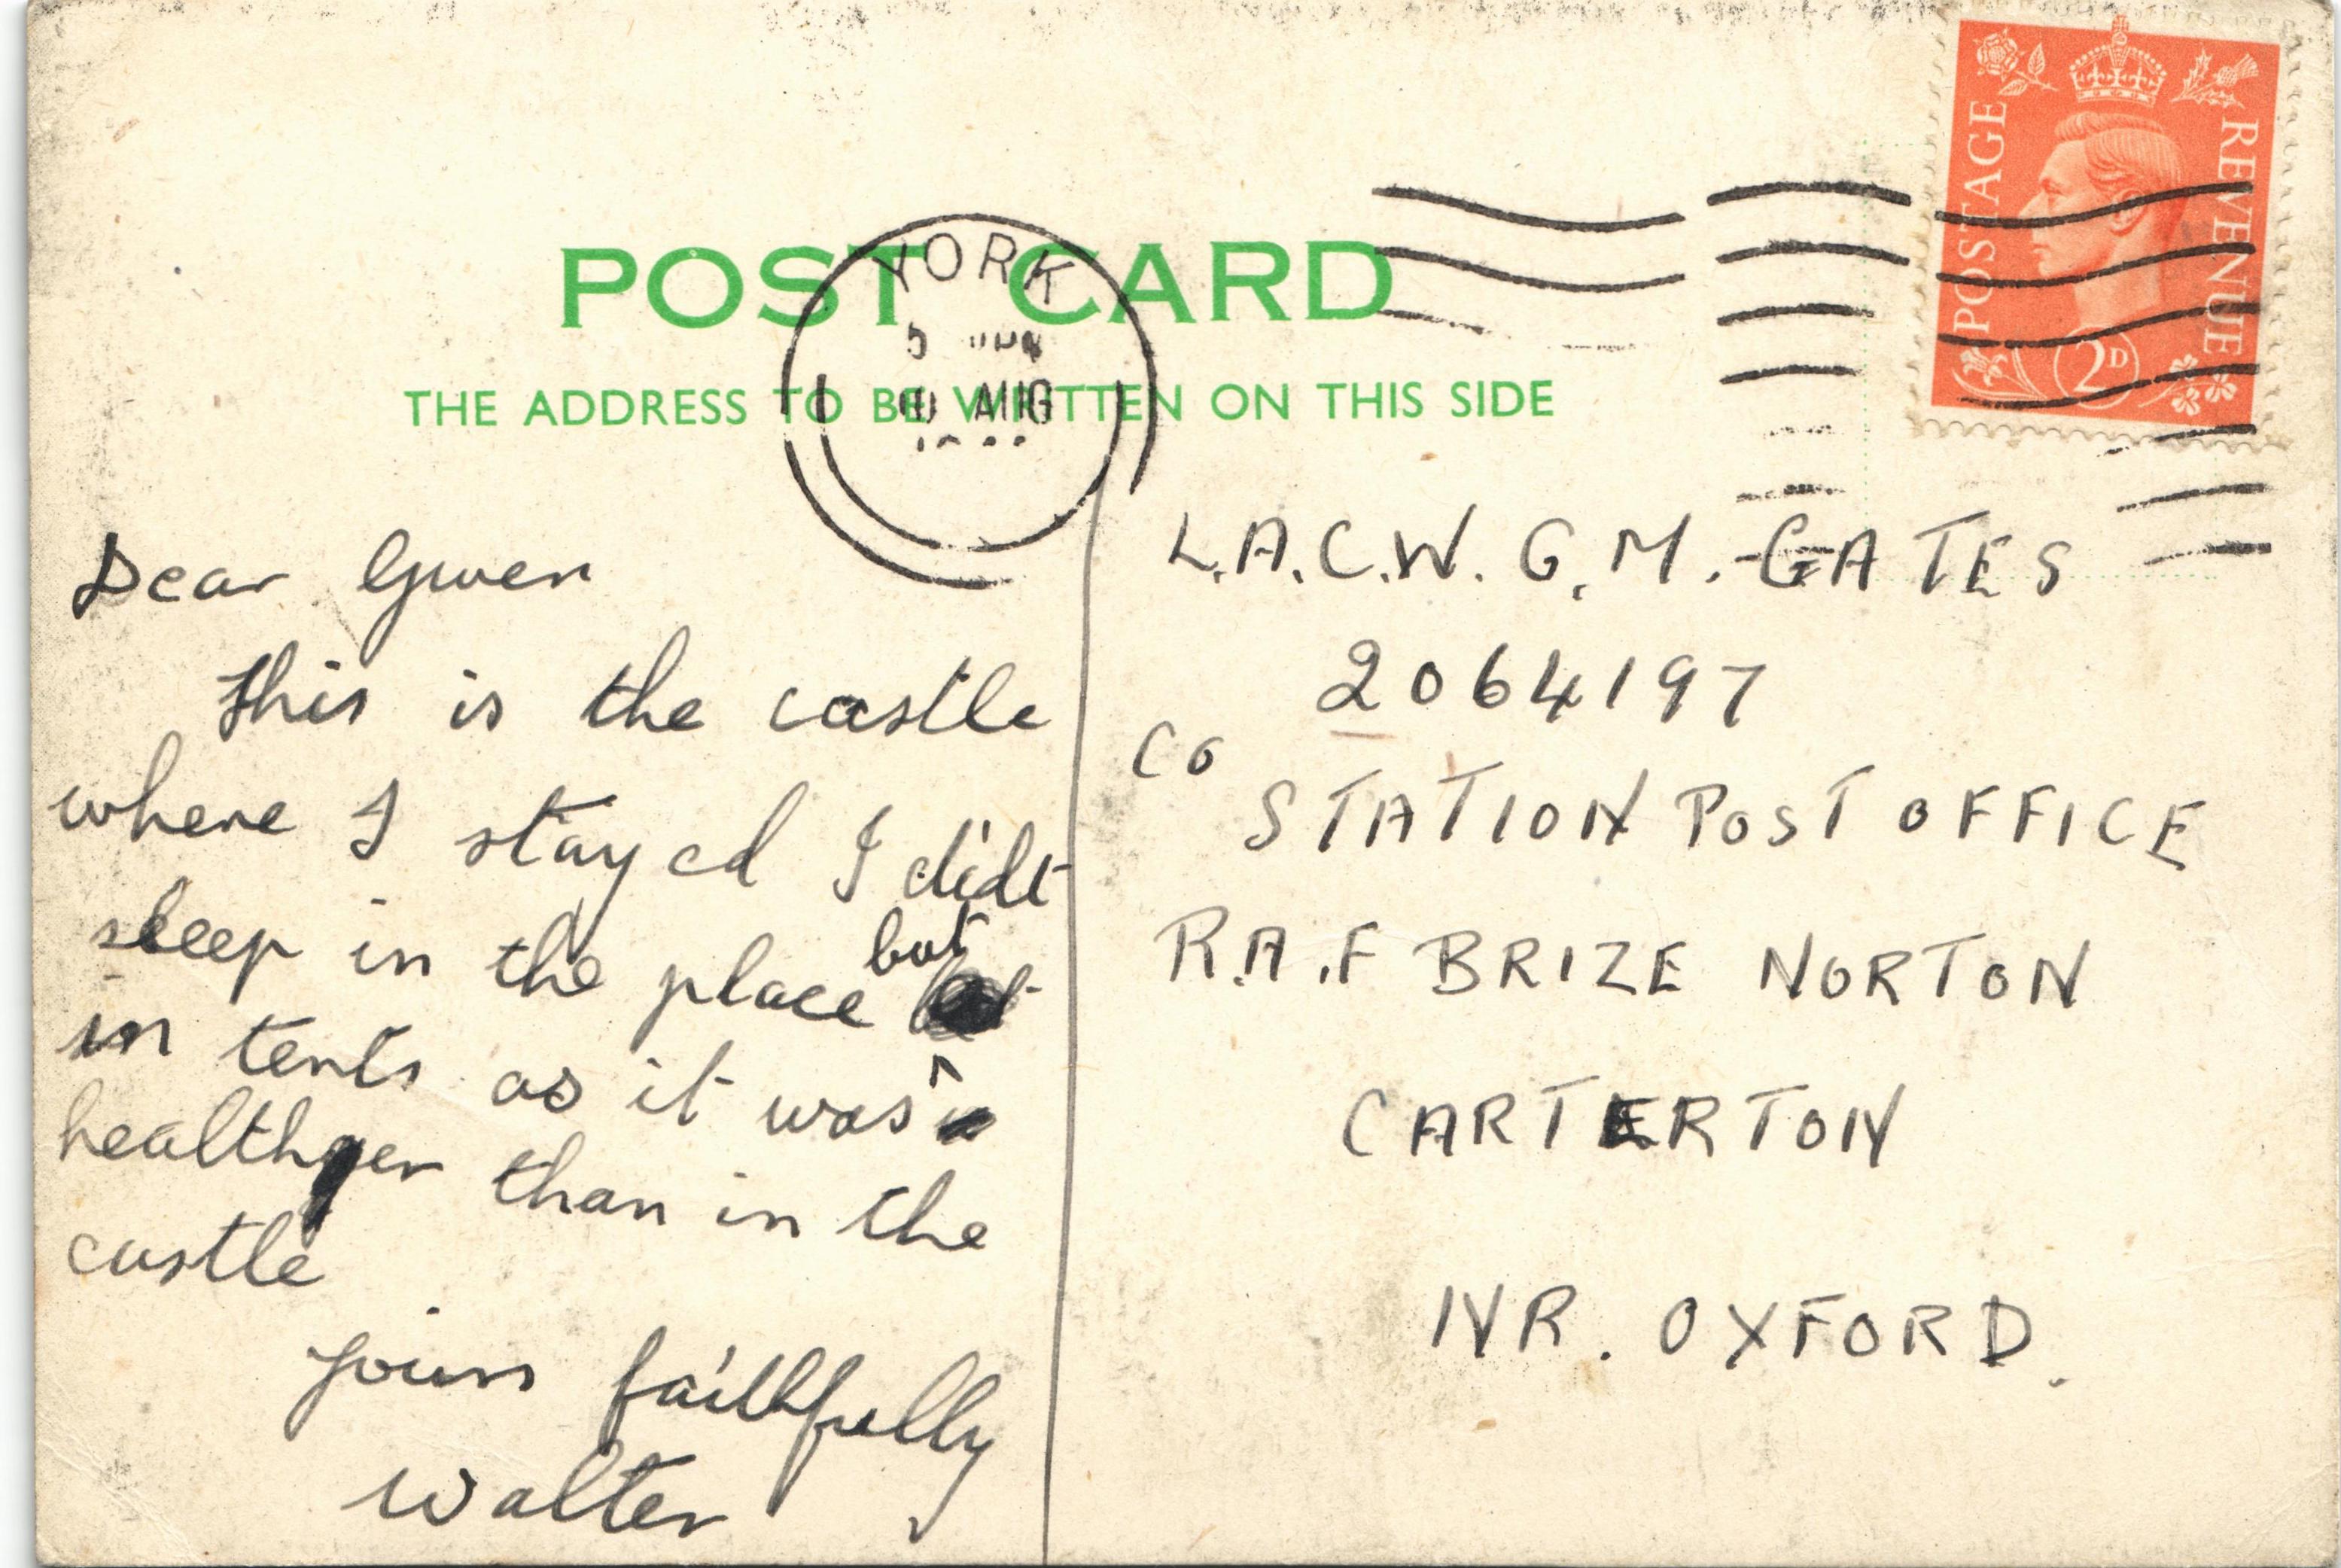 POST CARD
THE ADDRESS TO BE WRITTEN ON THIS SIDE
YORK
AUG
POSTAGE
REVENUE
2D
Dear Gwen
This is the castle
where I stayed I didt
sleep in the place but
in tents as it was
healthyer than in the
castle
yours faithfully
Walter
L.A.C.W. G.M. GATES
2064197
CO
STATION POST OFFICE
R.A.F BRIZE NORTON
CARTERTON
NR. OXFORD.